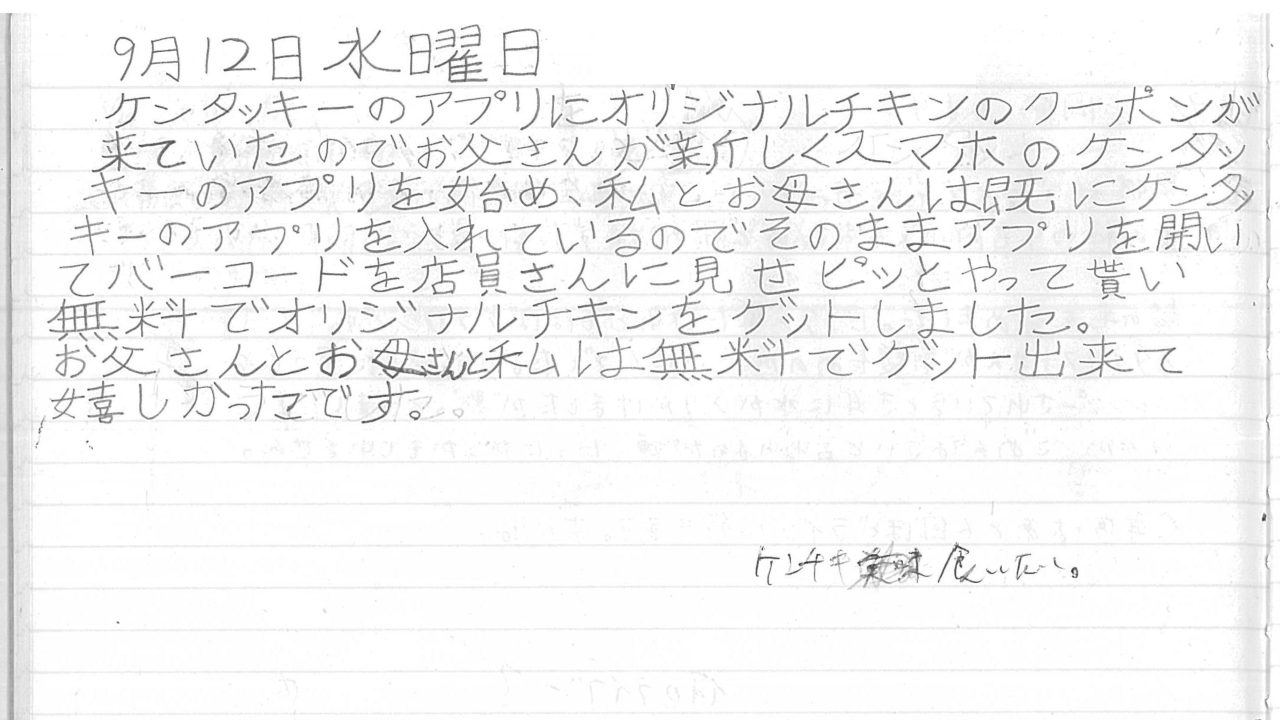 9月12日水曜日
ケンタッキーのアプリにオリジナルチキンのクーポンが
来ていたのでお父さんが新しくスマホのケンタッ
キーのアプリを始め、私とお母さんは既にケンタッ
キーのアプリを入れているのでそのままアプリを開い
てバーコードを店員さんに見せピッとやって貰い
無料でオリジナルチキンをゲットしました。
お父さんとお母さんと私は無料でゲット出来て
嬉しかったです。。
ケンチキ 食いたい。